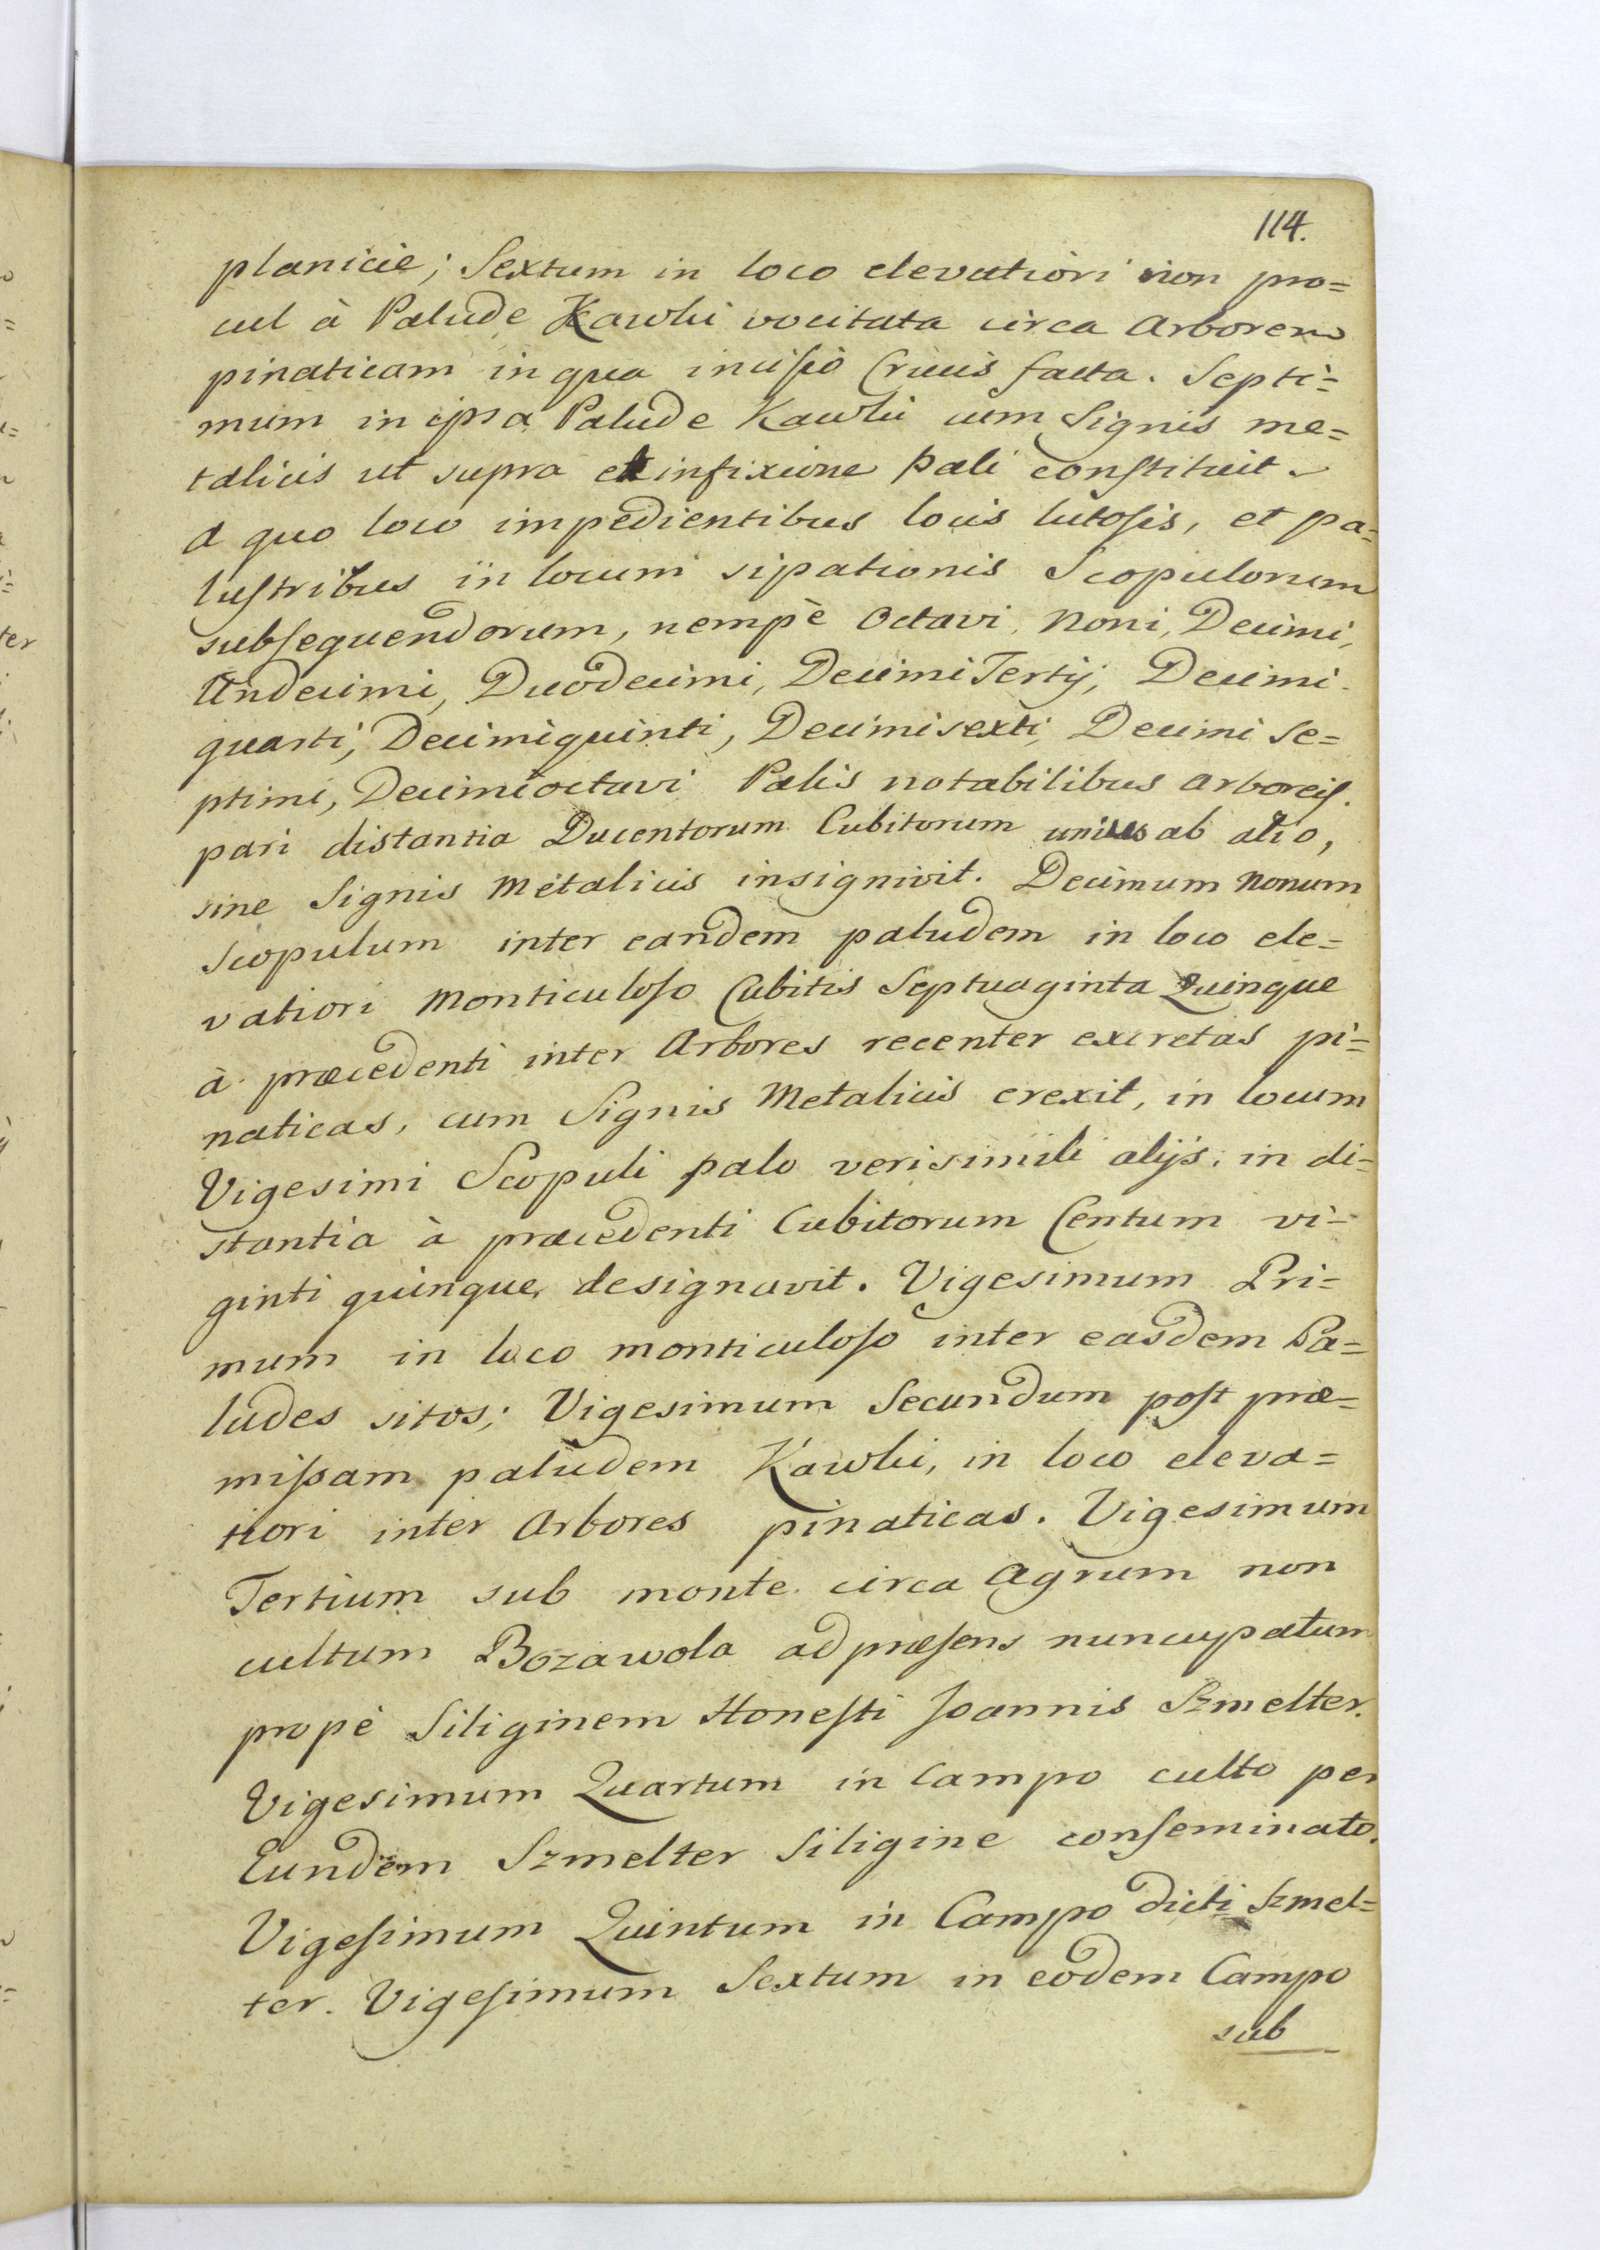 114.
planicie; Sextum in loco elevatiori non pro=
cul à Palude Kawki vocitata circa Arborem
pinaticam in qua incisio Crucis facta. Septi=
mum in ipsa Palude Kawki cum Signis me=
talicis ut supra et infixione pali constituit.
a quo loco impedientibus locis lutosis, et pa=
lustribus in locum sipationis Scopulorum
subsequendorum, nempè Octavi, Noni, Decimi,
Undecimi, Duodecimi, Decimi Tertij, Decimi
quarti, Decimiquinti, Decimisexti, Decimi Se=
ptimi, Decimioctavi Palis notabilibus arboreis.
pari distantia Ducentorum Cubitorum unius ab alio,
sine Signis Metalicis insignivit. Decimum Nonum
Scopulum inter eandem paludem in loco ele=
vatiori Monticuloso Cubitis Septuaginta Quinque
à præcedenti inter Arbores recenter excretas pi=
naticas, cum Signis Metalicis erexit, in locum
Vigesimi Scopuli palo verisimili alijs, in di=
stantia à præcedenti Cubitorum Centum vi=
ginti quinque, designavit. Vigesimum Pri=
mum in loco monticuloso inter easdem Pa=
ludes sitos; Vigesimum Secundum post præ=
missam paludem Kawki, in loco eleva=
tiori inter Arbores pinaticas. Vigesimum
Tertium sub monte circa Agrum non
cultum Bozawola ad præsens nuncupatum
propè Siliginem Honesti Joannis Szmelter.
Vigesimum Quartum in Campo culto per
Eundem Szmelter Siligine conseminato.
Vigesimum Quintum in Campo dicti Szmel=
ter. Vigesimum Sextum in eodem Campo
sub